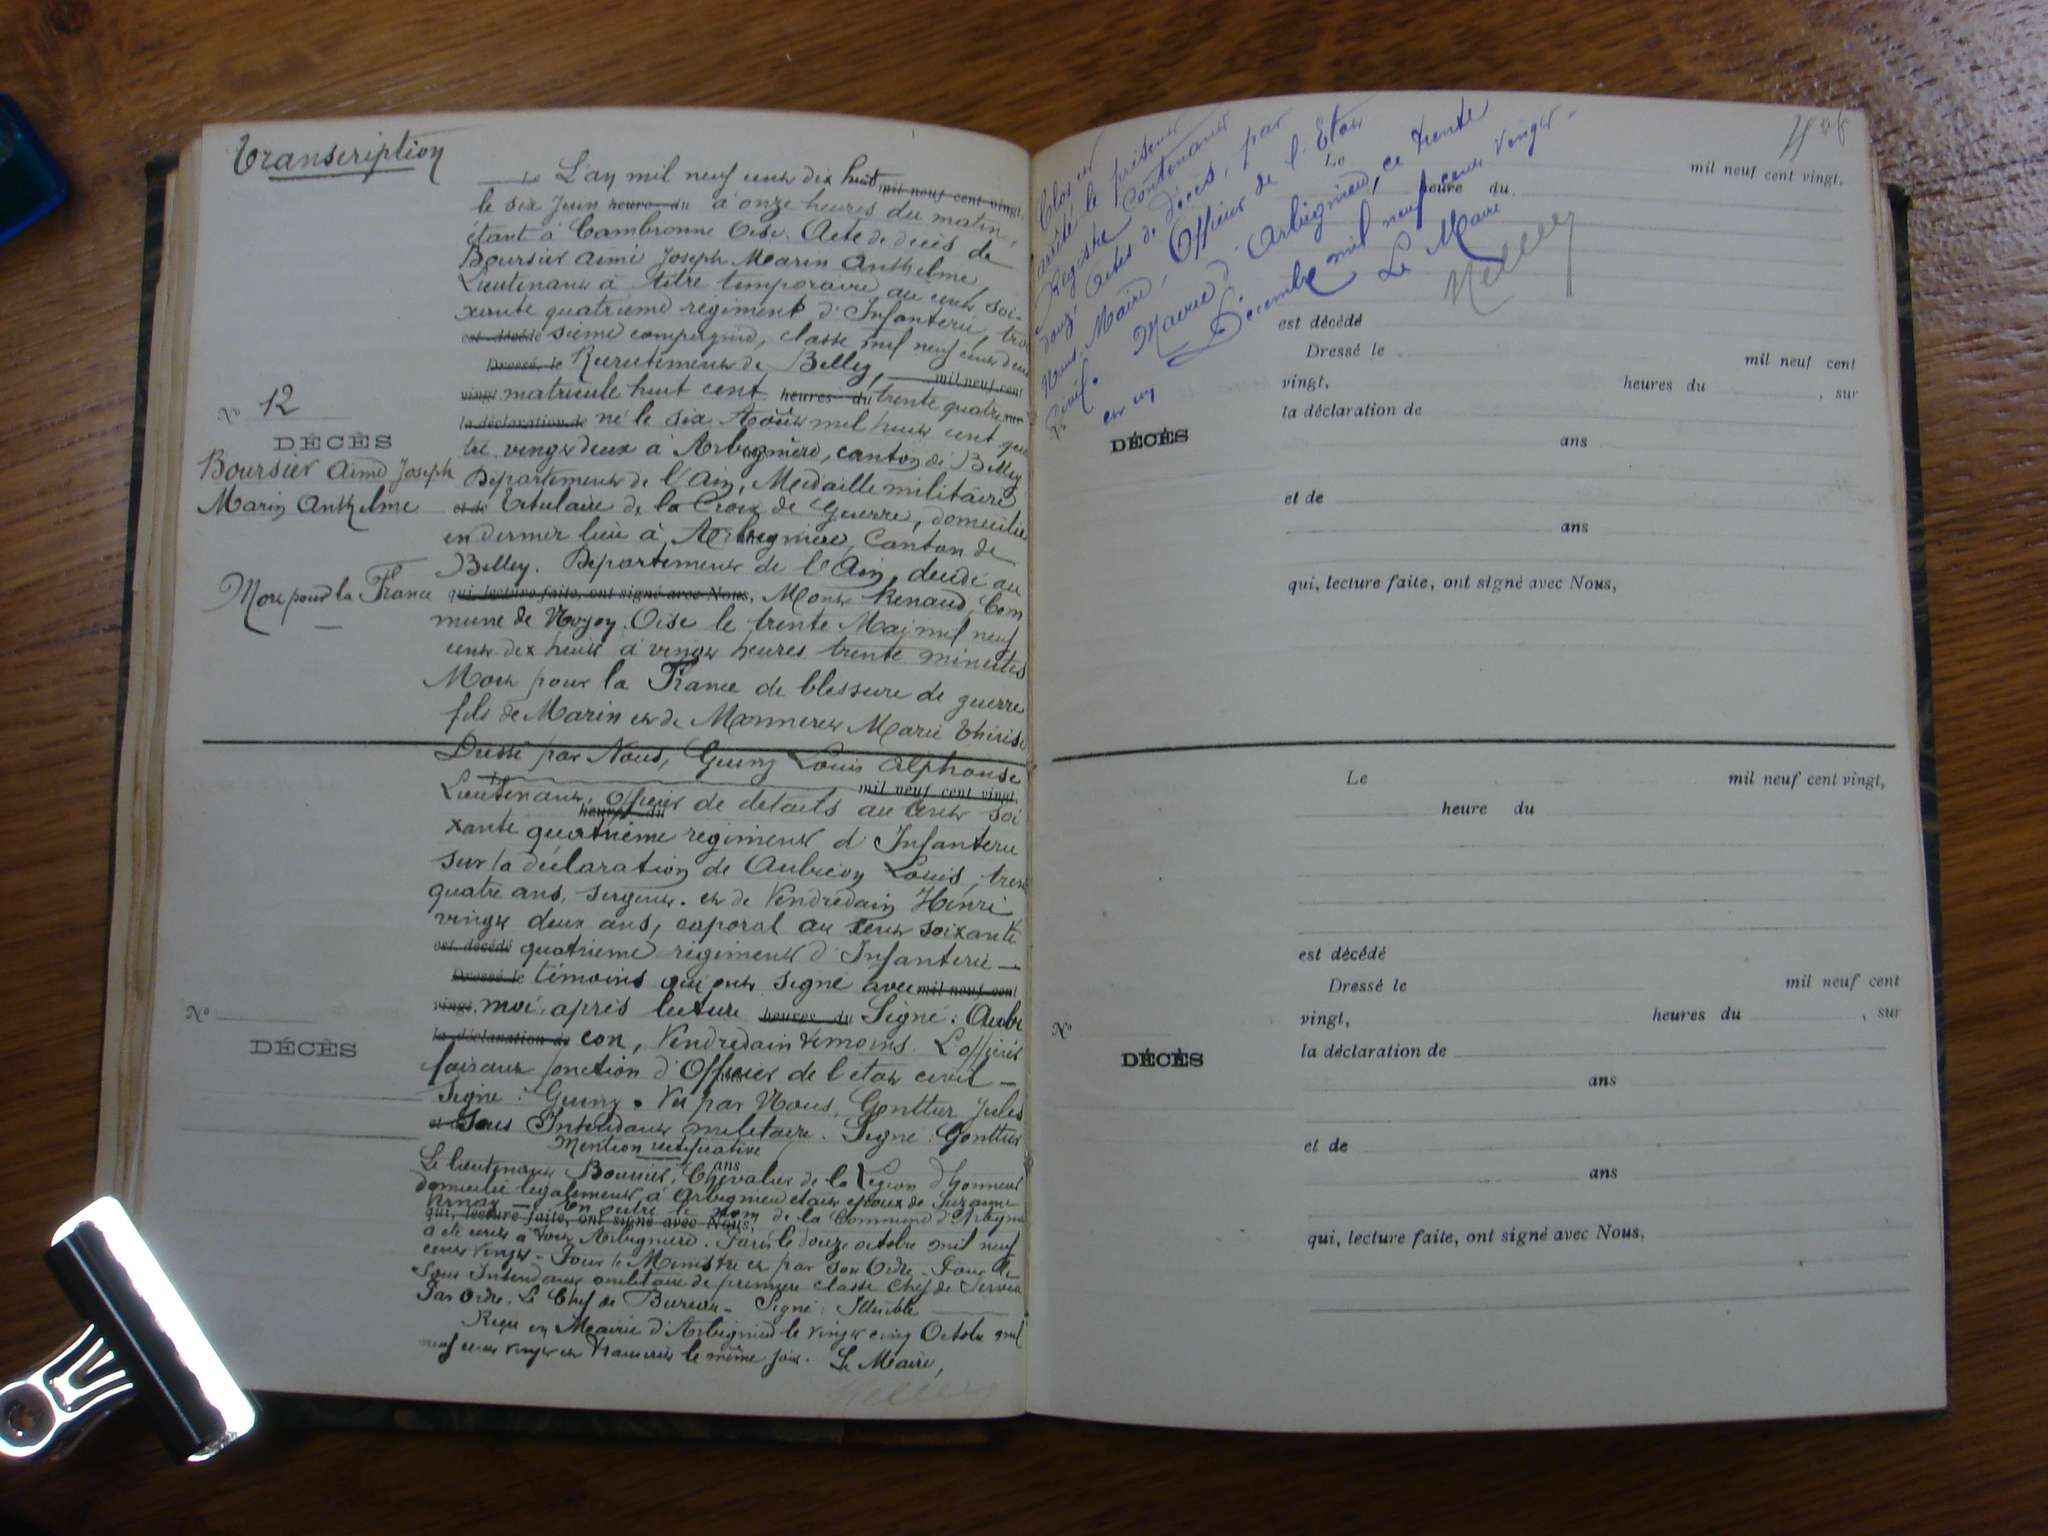 Transcription
L'an mil neuf cent dix huit mil neuf cent vingt,
le six Juin heure du à onze heures du matin,
étant à Cambronne Oise. Acte de décès de
Boursier Aimé Joseph Marin Anthelme
Lieutenant à titre temporaire au cent soi-
xante quatrième régiment d'Infanterie, troi
est décédé sième compagnie, classe mil neuf cent deux
Dressé le Recrutement de Belley, mil neuf cent
vingt matricule huit cent heures du trente quatre, sur
la déclaration de né le six Août mil huit cent qua
tre vingt deux à Arbignieu, canton de Belley
Département de l'Ain, Médaille militaire
et de titulaire de la Croix de Guerre, domicilié
en dernier lieu à Arbignieu, Canton de
Belley. Département de l'Ain, décédé au
qui, lecture faite, ont signé avec Nous, Mont Renaud, Com
mune de Noyon. Oise le trente Mai mil neuf
cent dix huit à vingt heures trente minutes
Mort pour la France de blessure de guerre
fils de Marin et de Monneret Marie Thérèse
N° 12
DÉCÈS
Boursier Aimé Joseph
Marin Anthelme
Mort pour la France
Dressé par Nous, Guiny Louis Alphonse
Le mil neuf cent vingt,
Lieutenant, Officier de détails au Cent soi
heure du
xante quatrième régiment d'Infanterie
sur la déclaration de Aubicon Louis, trente
quatre ans, sergent. et de Vendredain Henri
vingt deux ans, caporal au Cent soixante
est décédé quatrième régiment d'Infanterie —
Dressé le témoins qui ont signé avec mil neuf cent
vingt, moi après lecture heures du Signé: Aubi
la déclaration de con, Vendredain témoins. L'officier
faisant fonction d'Officier de l'état civil —
ans
Signé: Guiny. Vu par Nous, Gonttier Jules
et de Sous Intendant militaire. Signé: Gonttier
Mention rectificative
ans
Le lieutenant Boursier, Chevalier de la Légion d'honneur
domicilié légalement à Arbignieu était époux de Suzanne
En outre le nom de la Commune d'Arbignieu
qui, lecture faite, ont signé avec Nous,
a été écrit à tort Arbignieu. Paris le douze octobre mil neuf
cent vingt - Pour le Ministre et par son Ordre. Pour le
Sous Intendant militaire de première classe Chef de Service
Par Ordre. Le Chef de Bureau - Signé: Illisible
Reçu en Mairie d'Arbignieu le vingt cinq Octobre mil
neuf cent vingt et transcrit le même jour. Le Maire,
N°
DÉCÈS
Clos et
arrêté le présent
Registre Contenant
douze Actes de décès, par
Nous, Maire, Officier de l'Etat
Civil. Mairie d'Arbignieu, ce trente
et un Décembre mil neuf cent vingt.
Le Maire
Le mil neuf cent vingt,
heure du
est décédé
Dressé le mil neuf cent
vingt, heures du , sur
la déclaration de
N°
DÉCÈS
ans
et de
ans
qui, lecture faite, ont signé avec Nous,
Le mil neuf cent vingt,
heure du
est décédé
Dressé le mil neuf cent
vingt, heures du , sur
N°
la déclaration de
DÉCÈS
ans
et de
ans
qui, lecture faite, ont signé avec Nous,